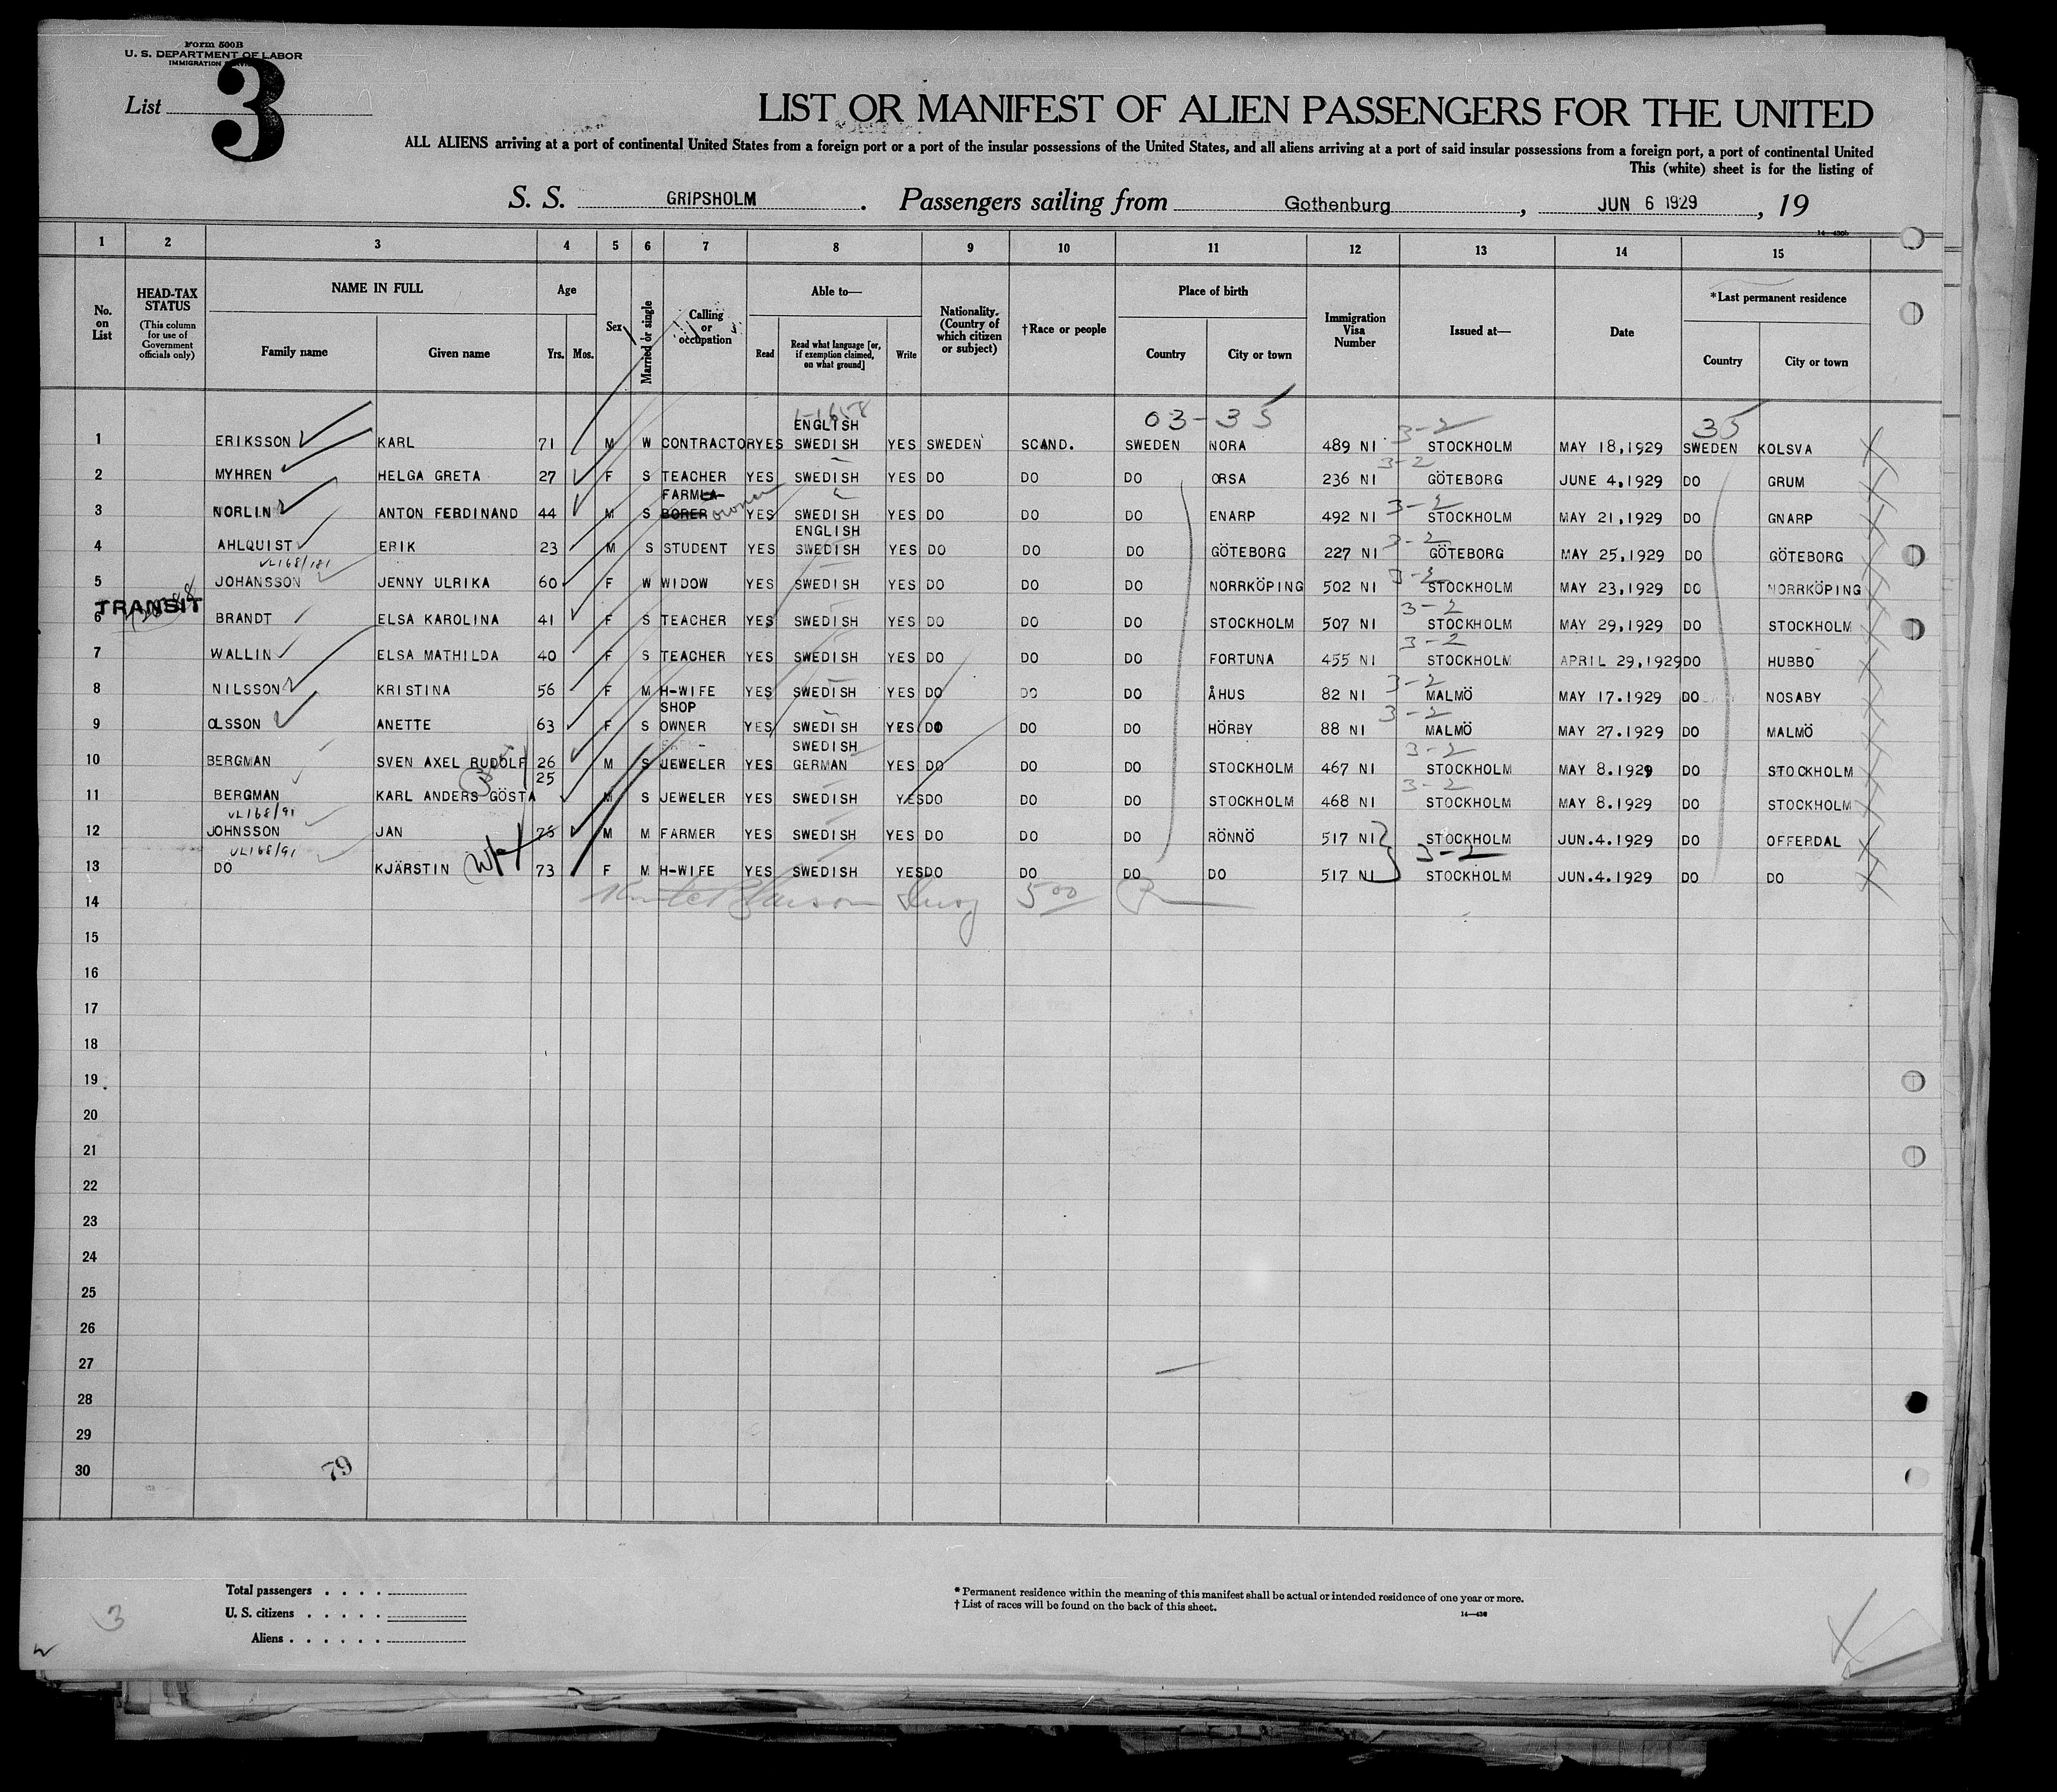 Form 500B
U. S. DEPARTMENT OF LABOR
IMMIGRATION
List 3
LIST OR MANIFEST OF ALIEN PASSENGERS FOR THE UNITED
ALL ALIENS arriving at a port of continental United States from a foreign port or a port of the insular possessions of the United States, and all aliens arriving at a port of said insular possessions from a foreign port, a port of continental United
This (white) sheet is for the listing of
S. S. GRIPSHOLM . Passengers sailing from Gothenburg , JUN 6 1929 , 19
14—430b
1 2 3 4 5 6 7 8 9 10 11 12 13 14 15
No. on List
HEAD-TAX STATUS (This column for use of Government officials only)
NAME IN FULL
Family name
Given name
Age
Yrs. Mos.
Sex
Married or single
Calling or occupation
Able to—
Read
Read what language [or, if exemption claimed, on what ground]
Write
Nationality. (Country of which citizen or subject)
†Race or people
Place of birth
Country
City or town
Immigration Visa Number
Issued at—
Date
*Last permanent residence
Country
City or town
03-35 35
ENGLISH
1 ERIKSSON KARL 71 M W CONTRACTOR YES SWEDISH YES SWEDEN SCAND. SWEDEN NORA 489 NI 3-2 STOCKHOLM MAY 18,1929 SWEDEN KOLSVA
2 MYHREN HELGA GRETA 27 F S TEACHER YES SWEDISH YES DO DO DO ORSA 236 NI 3-2 GÖTEBORG JUNE 4,1929 DO GRUM
FARMLA-
3 NORLIN ANTON FERDINAND 44 M S BORER owner YES SWEDISH YES DO DO DO ENARP 492 NI 3-2 STOCKHOLM MAY 21,1929 DO GNARP
ENGLISH
4 AHLQUIST ERIK 23 M S STUDENT YES SWEDISH YES DO DO DO GÖTEBORG 227 NI 3-2 GÖTEBORG MAY 25,1929 DO GÖTEBORG
VL168/181
5 JOHANSSON JENNY ULRIKA 60 F W WIDOW YES SWEDISH YES DO DO DO NORRKÖPING 502 NI 3-2 STOCKHOLM MAY 23,1929 DO NORRKÖPING
TRANSIT
6 BRANDT ELSA KAROLINA 41 F S TEACHER YES SWEDISH YES DO DO DO STOCKHOLM 507 NI 3-2 STOCKHOLM MAY 29,1929 DO STOCKHOLM
7 WALLIN ELSA MATHILDA 40 F S TEACHER YES SWEDISH YES DO DO DO FORTUNA 455 NI 3-2 STOCKHOLM APRIL 29,1929 DO HUBBO
8 NILSSON KRISTINA 56 F M H-WIFE YES SWEDISH YES DO DO DO ÅHUS 82 NI 3-2 MALMÖ MAY 17.1929 DO NOSABY
SHOP
9 OLSSON ANETTE 63 F S OWNER YES SWEDISH YES DO DO DO HÖRBY 88 NI 3-2 MALMÖ MAY 27.1929 DO MALMÖ
SWEDISH
10 BERGMAN SVEN AXEL RUDOLF 26 M S JEWELER YES GERMAN YES DO DO DO STOCKHOLM 467 NI 3-2 STOCKHOLM MAY 8.1929 DO STOCKHOLM
25
11 BERGMAN KARL ANDERS GÖSTA M S JEWELER YES SWEDISH YES DO DO DO STOCKHOLM 468 NI 3-2 STOCKHOLM MAY 8.1929 DO STOCKHOLM
VL168/91
12 JOHNSSON JAN 75 M M FARMER YES SWEDISH YES DO DO DO RÖNNÖ 517 NI STOCKHOLM JUN.4.1929 DO OFFERDAL
VL168/91
13 DO KJÄRSTIN 73 F M H-WIFE YES SWEDISH YES DO DO DO DO 517 NI 3-2 STOCKHOLM JUN.4.1929 DO DO
14 5 00
15
16
17
18
19
20
21
22
23
24
25
26
27
28
29
30
79
Total passengers . . . .
U. S. citizens . . . . .
Aliens . . . . . .
* Permanent residence within the meaning of this manifest shall be actual or intended residence of one year or more.
† List of races will be found on the back of this sheet.
14—430
3